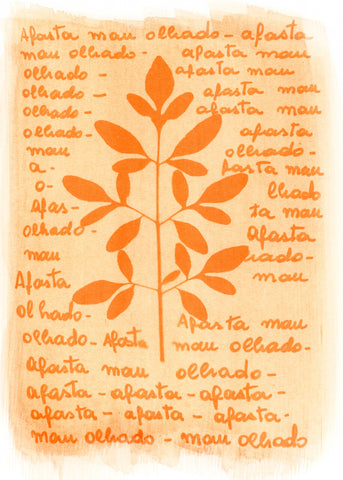 Afasta mau olhado - afasta
mau olhado - afasta mau
olhado - afasta mau
olhado - olhado -
olhado - afasta mau
olhado - afasta
mau olhado -
a- fasta mau
o- lhado
Afas- ta mau
olhado- Afasta
mau lhado-
Afasta mau
olhado-
Afasta mau
olhado - Afasta mau olhado-
Afasta mau olhado-
afasta - afasta - afasta-
afasta - afasta - afasta-
mau olhado - mau olhado